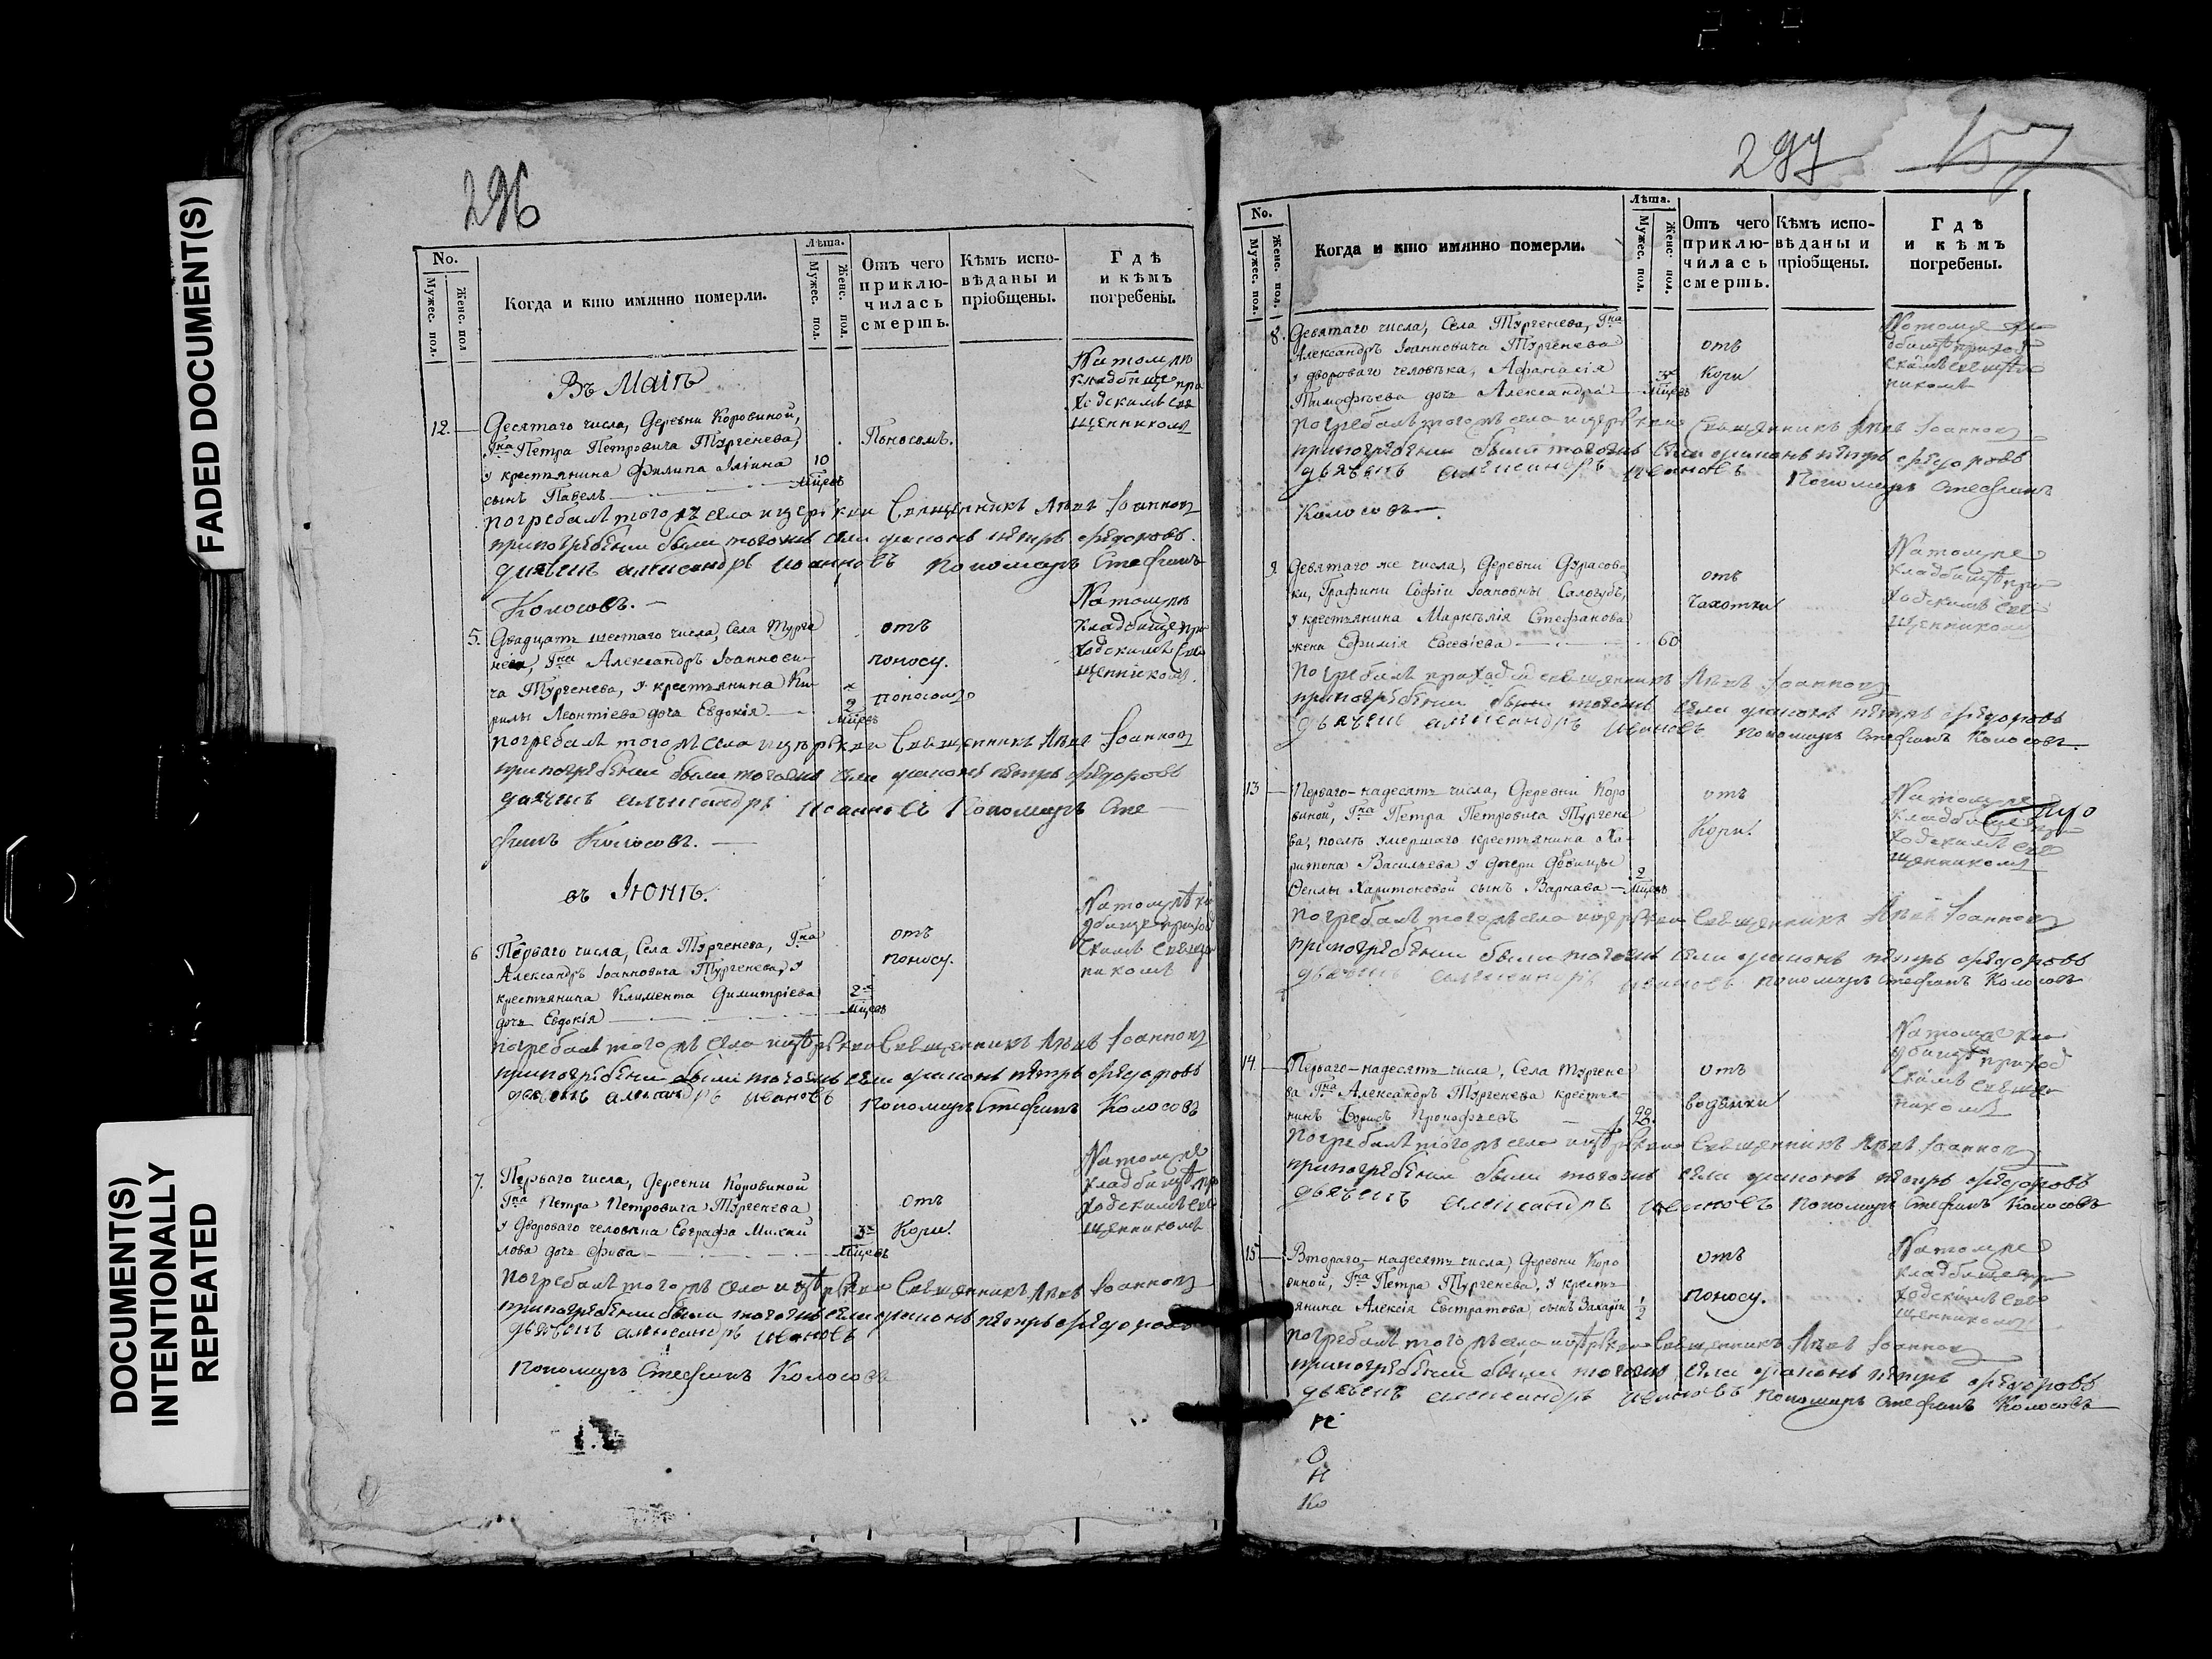 FADED DOCUMENT(S)
DOCUMENT(S)
INTENTIONALLY
REPEATED
296
No.
Мужес. пол.
Женс. пол
Когда и кто имянно померли.
Лѣта.
Мужес. пол.
Женс. пол.
Отъ чего
приклю-
чилась
смерть.
Кѣмъ испо-
вѣданы и
пріобщены.
Гдѣ
и кѣмъ
погребены.
Въ Маіѣ
12.
Десятаго числа, Деревни Коровиной,
Гна Петра Петровича Тургенева,
у крестьянина Филипа Иліина
сынъ Павелъ
10
мцевъ
Поносомъ.
На томъ же
кладбище при
ходскимъ свя
щенникомъ
погребалъ того жъ села и церкви Священникъ Левъ Іоанновъ
при погребении были того жъ села диаконъ петръ Федоровъ.
дьячекъ александръ иоанновъ пономарь Стефанъ
Колосовъ.
5.
Двадцать шестаго числа, Села Турге
нева, Гна Александръ Іоаннови-
ча Тургенева, у крестьянина Ки-
рилы Леонтіева дочь Евдокія
2
мцевъ
отъ
поносу.
поносомъ
На томъ же
кладбище при
ходскимъ свя
щенникомъ.
погребалъ того жъ села и церкви Священникъ Левъ Іоанновъ
при погребении были того жъ села диаконъ петръ Федоровъ
дьячекъ александръ иоанновъ Пономарь Сте
фанъ Колосовъ.
въ Іюнѣ.
6
Перваго числа, Села Тургенева, Гна
Александръ Іоанновича Тургенева, у
крестьянина Климента Димитріева
дочь Евдокія
2х
мцевъ
отъ
поносу.
На томъ же кла
дбище приход
скимъ священ
никомъ
погребалъ того жъ села и церкви Священникъ Левъ Іоанновъ
при погребении были того жъ села диаконъ петръ Федоровъ
дьячекъ александръ ивановъ пономарь Стефанъ Колосовъ
7.
Перваго числа, деревни Коровиной
Гна Петра Петровича Тургенева
у Дворового человѣка Евграфа Михай
лова дочь
3х
мцевъ
отъ
Кори.
На томъ же
кладбище при
ходскимъ свя
щенникомъ
Погребалъ того жъ села и церкви Священникъ Левъ Іоанновъ
при погребении были того жъ села диаконъ петръ Федоровъ
дьячекъ александръ ивановъ
пономарь Стефанъ Колосовъ
297
157
No.
Мужес. пол.
Женс. пол.
Когда и кто имянно померли.
Лѣта.
Мужес. пол.
Женс. пол.
Отъ чего
приклю-
чилась
смерть.
Кѣмъ испо-
вѣданы и
пріобщены.
Гдѣ
и кѣмъ
погребены.
8.
Девятаго числа, Села Тургенева, Гна
Александръ Іоанновича Тургенева
у двороваго человѣка, Афанасія
Тимофѣева дочь Александра
3х
мцевъ
отъ
Кори
На томъ же кла
дбище приход
скимъ священ
никомъ
погребалъ того жъ села и церкви Священникъ Левъ Іоанновъ
при погребении были того жъ села диаконъ петръ Федоровъ
дьячекъ александръ ивановъ Пономарь Стефанъ
Колосовъ.
9.
Девятаго же числа, Деревни Дурасов-
ки, Графини Софіи Іоановны Салогубъ,
у крестьянина Маркелія Стефанова
жена Ефимія Евсевіева
60
отъ
Чахотки
На томъ же
кладбище при
ходскимъ свя
щенникомъ
Погребалъ приходской священникъ Левъ Іоанновъ
при погребении были того жъ села диаконъ петръ Федоровъ
дьячекъ александръ ивановъ пономарь Стефанъ Колосовъ.
13
Перваго-надесять числа, Деревни Коро
виной, Гна Петра Петровича Тургене
ва, послѣ умершаго крестьянина Ха-
ритона Васильева у дочери девицы
Феклы Харитоновой сынъ Варнава
2
мцевъ
отъ
Кори.
На томъ же
кладбище при
ходскимъ свя
щенникомъ
погребалъ того жъ села и церкви священникъ Левъ Іоанновъ
при погребении были того жъ села диаконъ петръ Федоровъ
дьячекъ александръ ивановъ пономарь Стефанъ Колосовъ
14
Перваго-надесять числа, Села Тургене
ва Гна Александръ Тургенева крестья
нинъ Борисъ Прокофьевъ
отъ
водянки
На томъ же кла
дбище приход
скимъ священ
никомъ
Погребалъ того жъ села и церкви Священникъ Левъ Іоанновъ
при погребении были того жъ села диаконъ петръ Федоровъ
дьячекъ александръ ивановъ пономарь Стефанъ Колосовъ
15
Втораго-надесять числа, Деревни Коро
виной, Гна Петра Тургенева, у кресть
янина Алексія Евстратова, сынъ Захарій
1/2
отъ
поносу.
На томъ же
кладбище при
ходскимъ свя
щенникомъ
погребалъ того жъ села и церкви Священникъ Левъ Іоанновъ
при погребении были того жъ села диаконъ петръ Федоровъ
дьячекъ александръ ивановъ пономарь Стефанъ Колосовъ